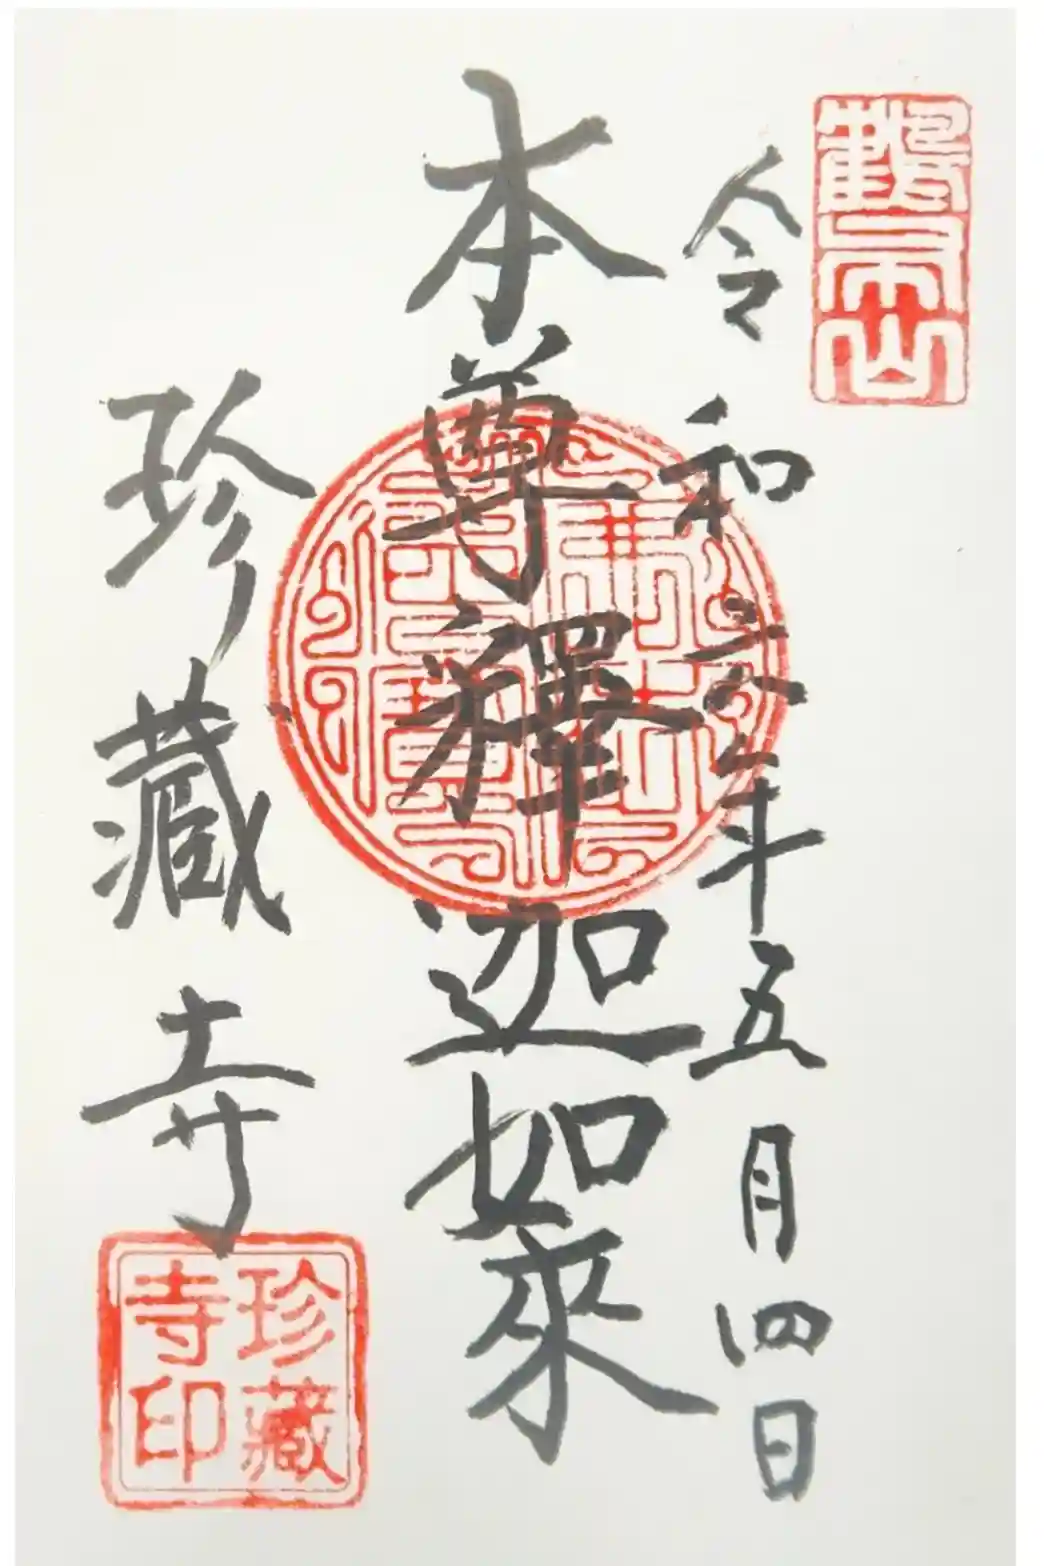 鶴布山
令和年五月四日
本尊釋迦如來
珍藏寺
珍藏寺印